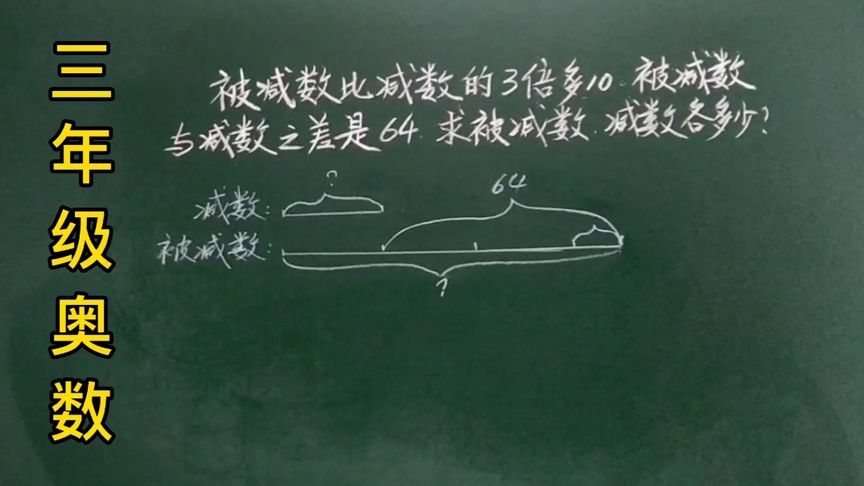 三年级奥数
被减数比减数的3倍多10.被减数
与减数之差是64.求被减数.减数各多少?
?
64
减数:
被减数:
?